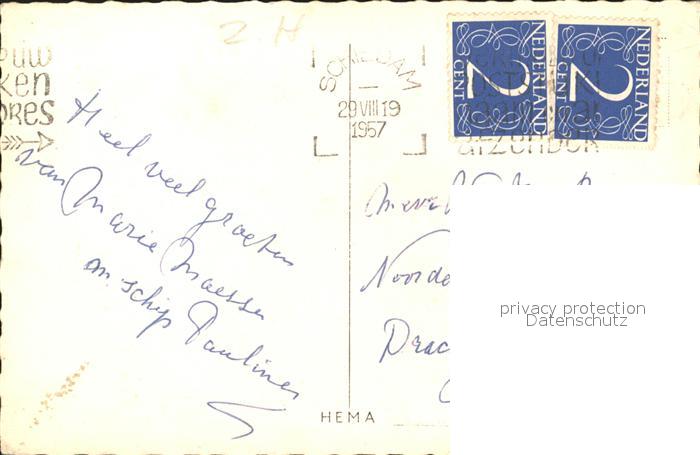 2 H
euw
ken
ores
SCHIEDAM
29 VIII 19
1957
NEDERLAND
2
CENT
NEDERLAND
2
CENT
afzender
Heel veel groeten
van Marie Maessen
m. schip Paulines
Mevr
Noorde
Drac
privacy protection
Datenschutz
HEMA